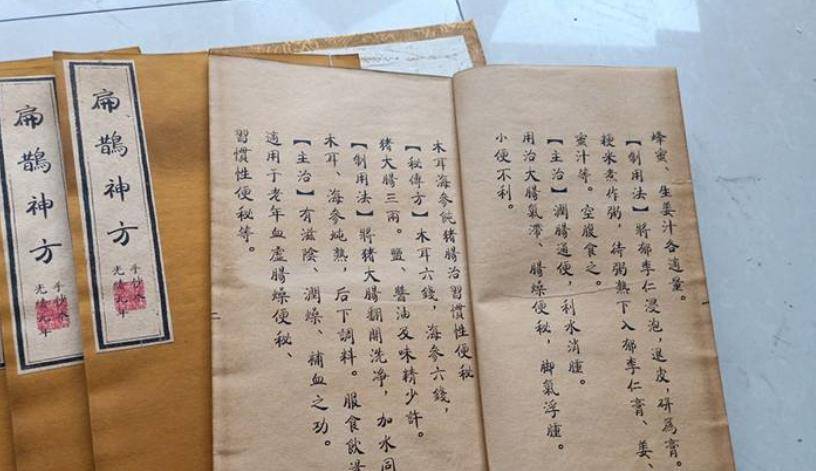 蜂蜜、生姜汁各適量。
【制用法】將郁李仁浸泡,退皮,研爲膏。
粳米煮作粥,待粥熟下入郁李仁膏、姜、
蜜汁等。空腹食之。
【主治】潤腸通便,利水消腫。
用治大腸氣滯、腸燥便秘,脚氣浮腫。
小便不利。
木耳海參炖猪腸治習慣性便秘
【秘傳方】木耳六錢,海參六錢,
猪大腸三兩。鹽、醬油及味精少許。
【制用法】將猪大腸翻開洗净,加水同
木耳、海參炖熟,后下調料。服食飲湯
【主治】有滋陰、潤燥、補血之功。
適用于老年血虚腸燥便秘、
習慣性便秘等。
扁鵲神方
手抄本
光緒元年
扁鵲神方
手抄本
光緒元年